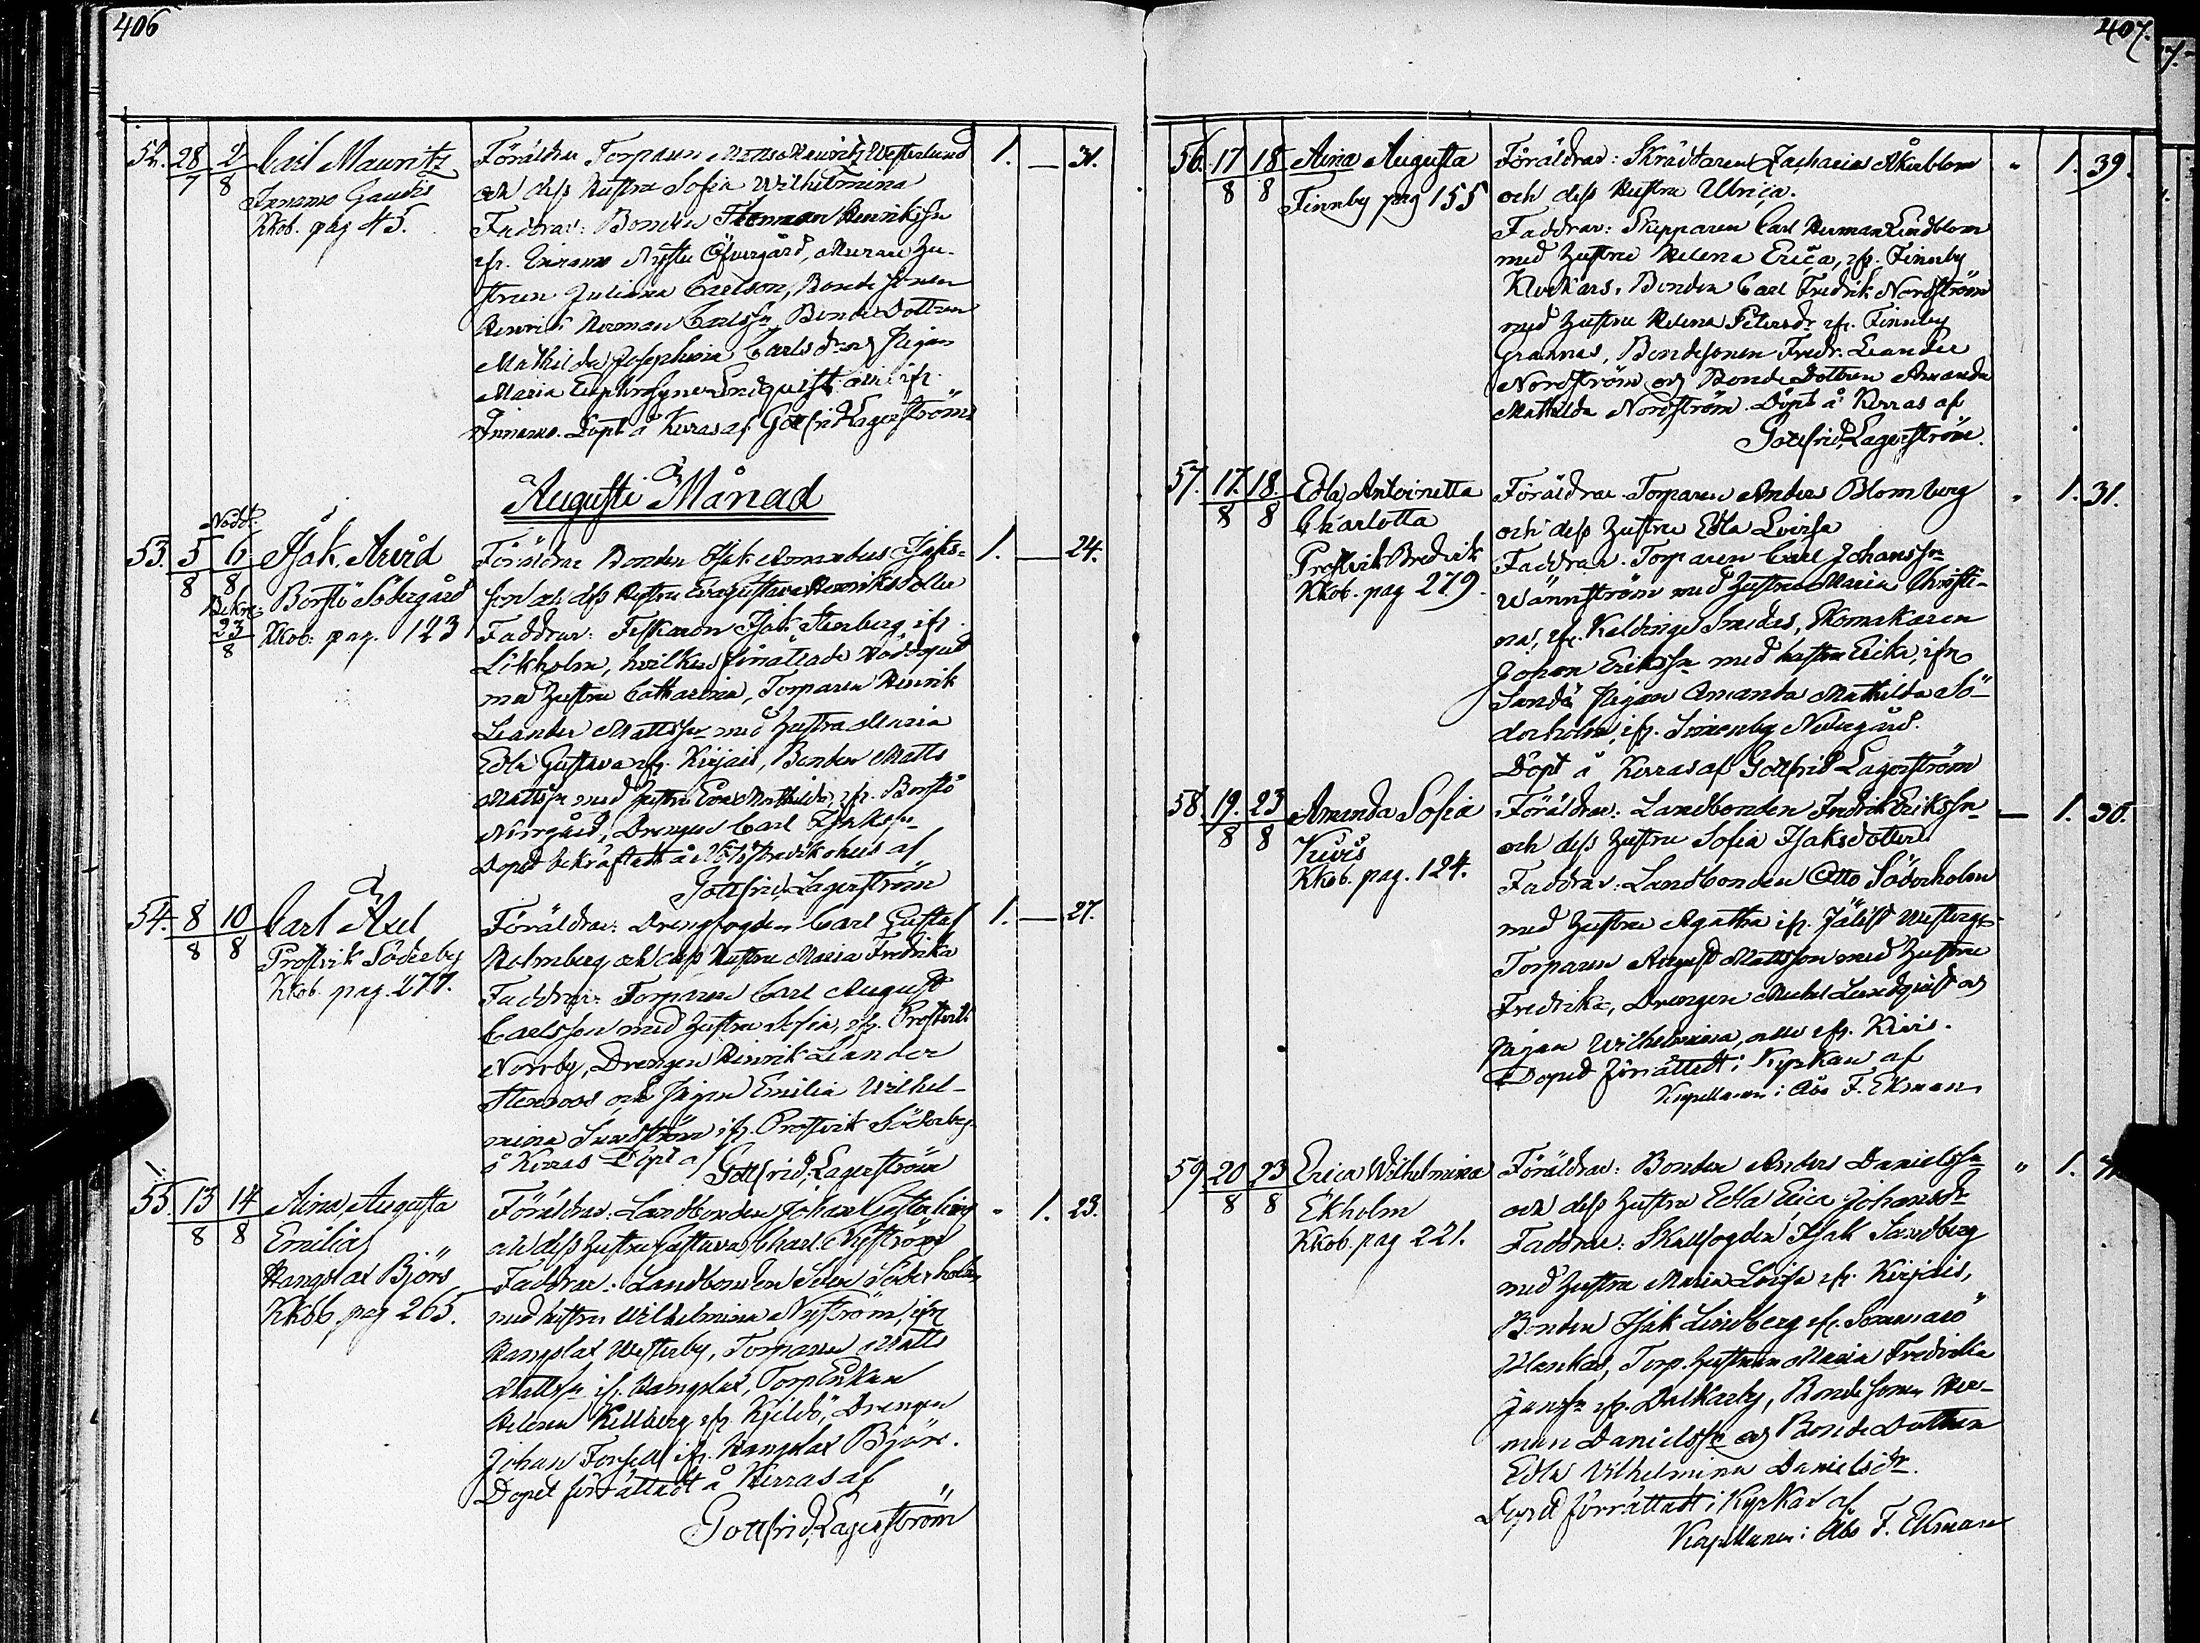 406
52. 28/7 2/8 Carl Mauritz
Kkob. pag 45.
Föräldrar Torparen Matts Mauritz Westerlund 1. — 31.
och dess Hustru Sofia Wilhelmina
Faddrar: Bonden Herman Henriksson
Öfvergård,
Juliana Carlson, Bonde Sonen
Henrik Herman Carlsson Bonde Dottren
Mathilda Josephina Carlsdr och Pigan
Maria Euphrosyne Lindquist alle ifr.
Döpt å Kerras af Gottfrid Lagerström
Augusti Månad
Nödd.
53. 5/8 6/8 Isak Arvid
Bekr: 23/8 Borstö Södergård
Kkob: pag. 123
Föräldrar Bonden Isak Amadeus Isaks- 1. — 24.
son och dess Hustru Eva Gustava Henriksdotter
Faddrar: Fiskaren Isak Stenberg ifr.
Lökholm, hvilken förrättade Nöddopet
med Hustru Catharina, Torparen Henrik
Leander Mattsson med Hustru Maria
Edla Gustava ifr. Kirjais, Bonden Matts
Mattsson med Hustru Eva Mathilda, ifr. Borstö
Norrgård, Drengen Carl Isaksson
Dopet bekräftadt å af
Gottfrid Lagerström
54. 8/8 10/8 Carl Axel
Prostvik Söderby
Kkob. pag. 277.
Föräldrar: Drengfogden Carl Gustaf 1. — 27.
Holmberg och dess Hustru Maria Fredrika
Faddrar: Torparen Carl August
Carlsson med Hustru Sofia, ifr. Prostvik
Norrby, Drengen Henrik Leander
Stenroos och Pigan Emilia Wilhel-
mina Sundström ifr. Prostvik Söderby
å Kerras Döpt af Gottfrid Lagerström
55. 13/8 14/8 Aina Augusta
Emilia
Hangslax Björs
Kkob pag 265.
Föräldrar: Landbonden Johan " 1. 23.
och dess Hustru Gustava Charl. Nyström
Faddrar: Landbonden Söderholm
med hustru Wilhelmina Nyström, ifr
Hangslax Westerby, Torparen Matts
Mattsson ifr. Hangslax, Torp Enkan
Helena Kellberg ifr. Kjeldö, Drengen
Johan Forsell ifr. Hangslax Björs.
Dopet förrättadt å Kerras af
Gottfrid Lagerström
407.
56. 17/8 18/8 Aina Augusta
Finnby pag 155
Föräldrar: Skräddaren Zacharias Åkerblom " 1. 39.
och dess Hustru Ulrica.
Faddrar: Skepparen Carl Herman Lindblom
med Hustru Helena Erica, ifr. Finnby
Klockars, Bonden Carl Fredrik Nordström
med Hustru Helena Petersdr ifr. Finnby
Grannas, Bondesonen Fredr. Leander
Nordström och Bonde Dottren Amanda
Mathilda Nordström. Döpt å Kerras af
Gottfrid Lagerström.
57. 17/8 18/8 Edla Antoinetta
Charlotta
Prostvik Bredvik
Kkob. pag 279.
Föräldrar. Torparen Anders Blomberg " 1. 31.
och dess Hustru Edla Lovisa
Faddrar. Torparen Carl Johansson
Wännström med Hustru Maria Christi-
na, ifr. Kaldinge Smedas, Skomakaren
Johan Eriksson med hustru Erika, ifr
Sandö Pigan Amanda Mathilda Sö-
derholm, ifr. Simonby Nedergård.
Döpt å Kerras af Gottfrid Lagerström
58. 19/8 23/8 Amanda Sofia
Kivis
Kkob. pag. 124.
Föräldrar: Landbonden Fredrik Eriksson — 1. 30.
och dess Hustru Sofia Isaksdotter
Faddrar: Landbonden Otto Söderholm
med Hustru Agatha ifr. Jälist Westerg:
Torparen August Mattsson med Hustru
Fredrika, Drengen Michel Lundqvist och
Pigan Wilhelmina, alle ifr. Kivis.
Dopet förrättadt i Kyrkan af
Kapellanen i Åbo F. Ekman
59 20/8 23/8 Erica Wilhelmina
Ekholm
Kkob. pag 221.
Föräldrar: Bonden Anders Danielsson " 1.
och dess Hustru Edla Erica Johansdr
Faddrar: Skallfogden Isak Sandberg
med Hustru Maria Lovisa ifr. Kirjais,
Bonden Isak Lindberg ifr. Sommarö
Torp. Hustrun Maria Fredrika
ifr. Dalkarby, Bonde Sonen Her-
man Danielsson och Bonde Dottren
Edla Vilhelmina Danielsdr.
Dopet förrättadt i Kyrkan af
Kapellanen i Åbo F. Ekman